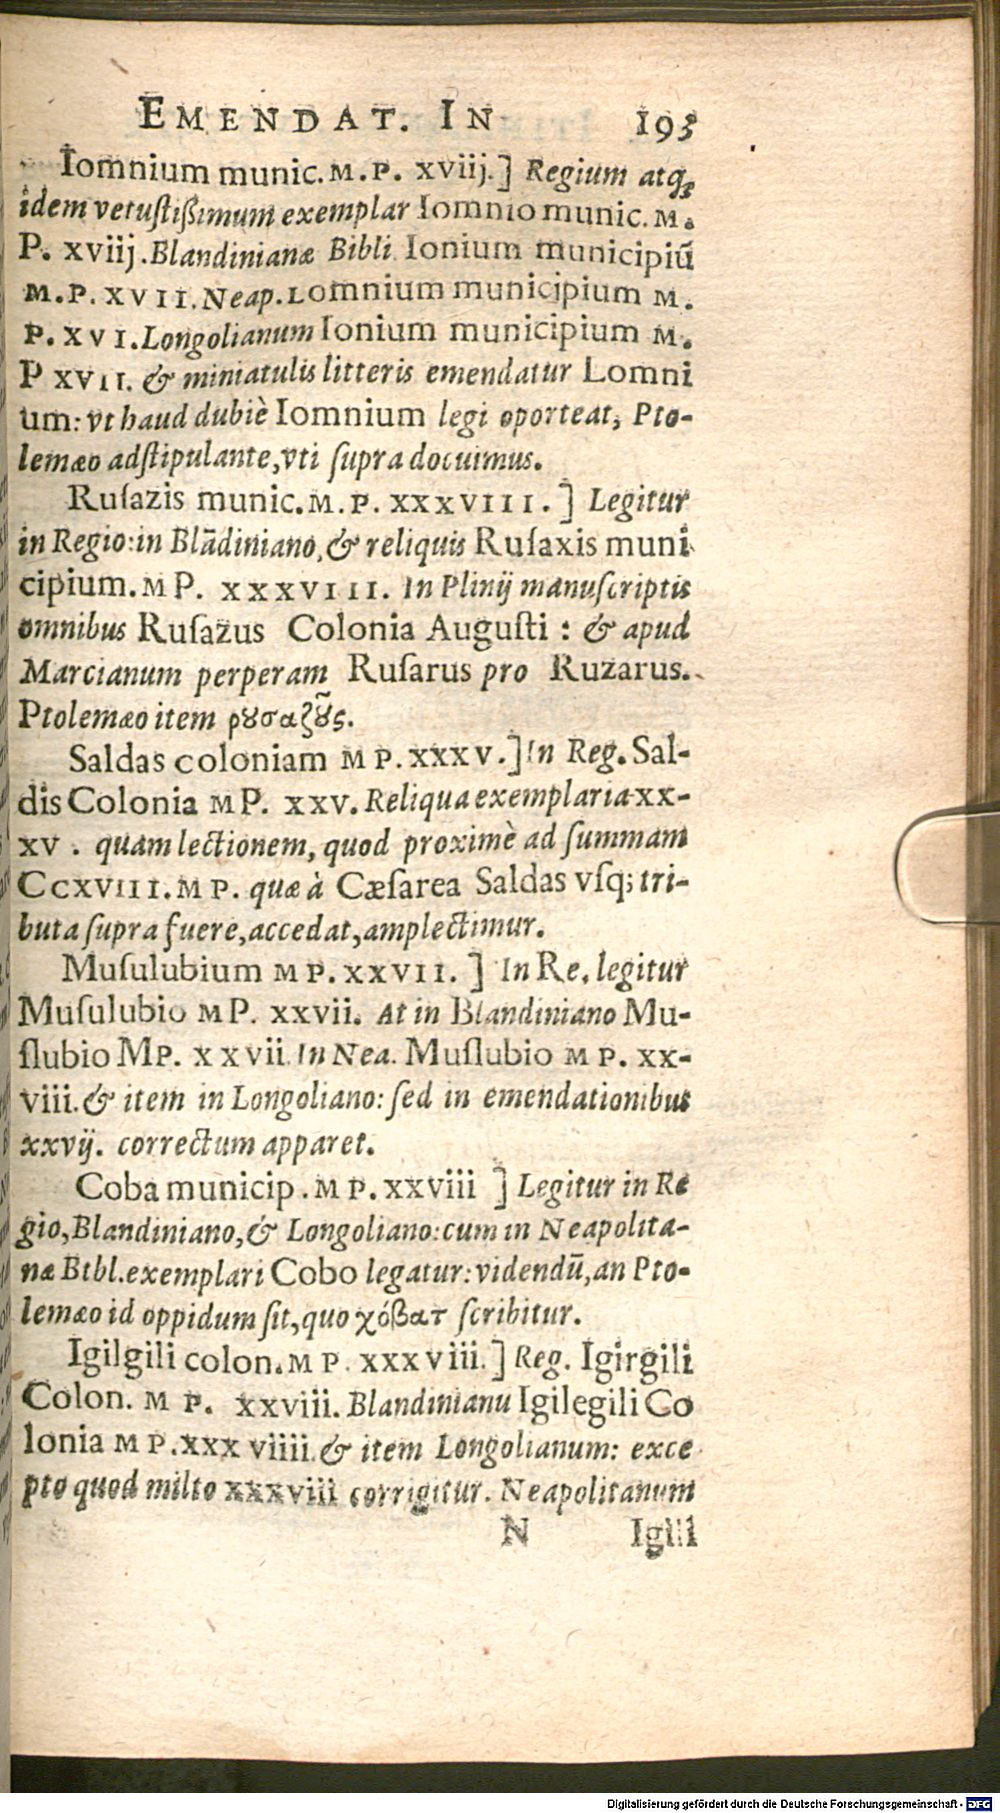 EMENDAT. IN 193
Iomnium munic. M.P. xviij.] Regium atq;
idem vetustißimum exemplar Iomnio munic. M.
P. xviij. Blandinianæ Bibli. Ionium municipiū
M.P. XVII. Neap. Lomnium municipium M.
P. XVI. Longolianum Ionium municipium M.
P XVII. & miniatulis litteris emendatur Lomni
um: vt haud dubiè Iomnium legi oporteat, Pto-
lemæo adstipulante, vti supra docuimus.
Rusazis munic. M. P. XXXVIII.] Legitur
in Regio: in Blādiniano, & reliquis Rusaxis muni
cipium. M P. XXXVIII. In Plinij manuscriptis
omnibus Rusazus Colonia Augusti: & apud
Marcianum perperam Rusarus pro Ruzarus.
Ptolemæo item ρȣσαζȣ͂ς.
Saldas coloniam M P. XXXV.] In Reg. Sal-
dis Colonia M P. XXV. Reliqua exemplaria XX-
XV. quam lectionem, quod proximè ad summam
CCXVIII. M P. quæ à Cæsarea Saldas vsq; tri-
buta supra fuere, accedat, amplectimur.
Musulubium M P. XXVII.] In Re. legitur
Musulubio M P. xxvii. At in Blandiniano Mu-
slubio MP. xxvii. In Nea. Muslubio M P. xx-
viii. & item in Longoliano: sed in emendationibus
xxvij. correctum apparet.
Coba municip. M P. xxviii ] Legitur in Re
gio, Blandiniano, & Longoliano: cum in Neapolita-
næ Bibl. exemplari Cobo legatur: videndū, an Pto-
lemæo id oppidum sit, quo χόβατ scribitur.
Igilgili colon. M P. xxxviii.] Reg. Igirgili
Colon. M P. xxviii. Blandinianu Igilegili Co
lonia M P. xxxviiii. & item Longolianum: exce
pto quod milto xxxviii corrigitur. Neapolitanum
N Iglil
Digitalisierung gefördert durch die Deutsche Forschungsgemeinschaft - DFG